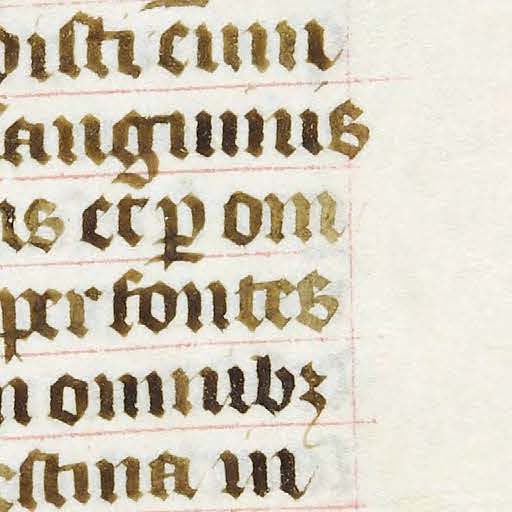 disti cum
sanguinis
us et ꝑ om
per fontes
n omnibꝫ
estina in